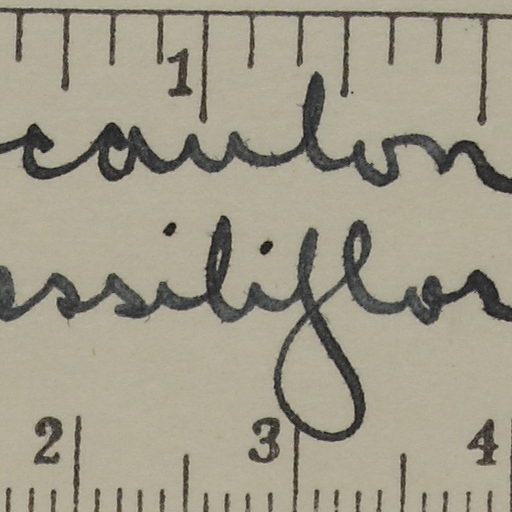 1
caulon
essiliflor
2 3 4